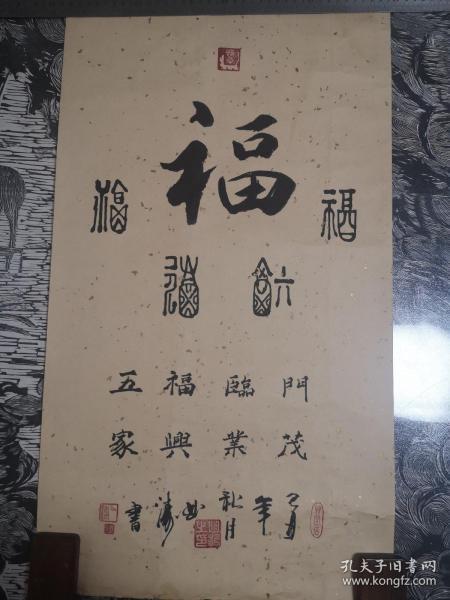 福
福 福
福 福
五福臨門
家興業茂
年
秋月
涛書
孔夫子旧书网
www.kongfz.com